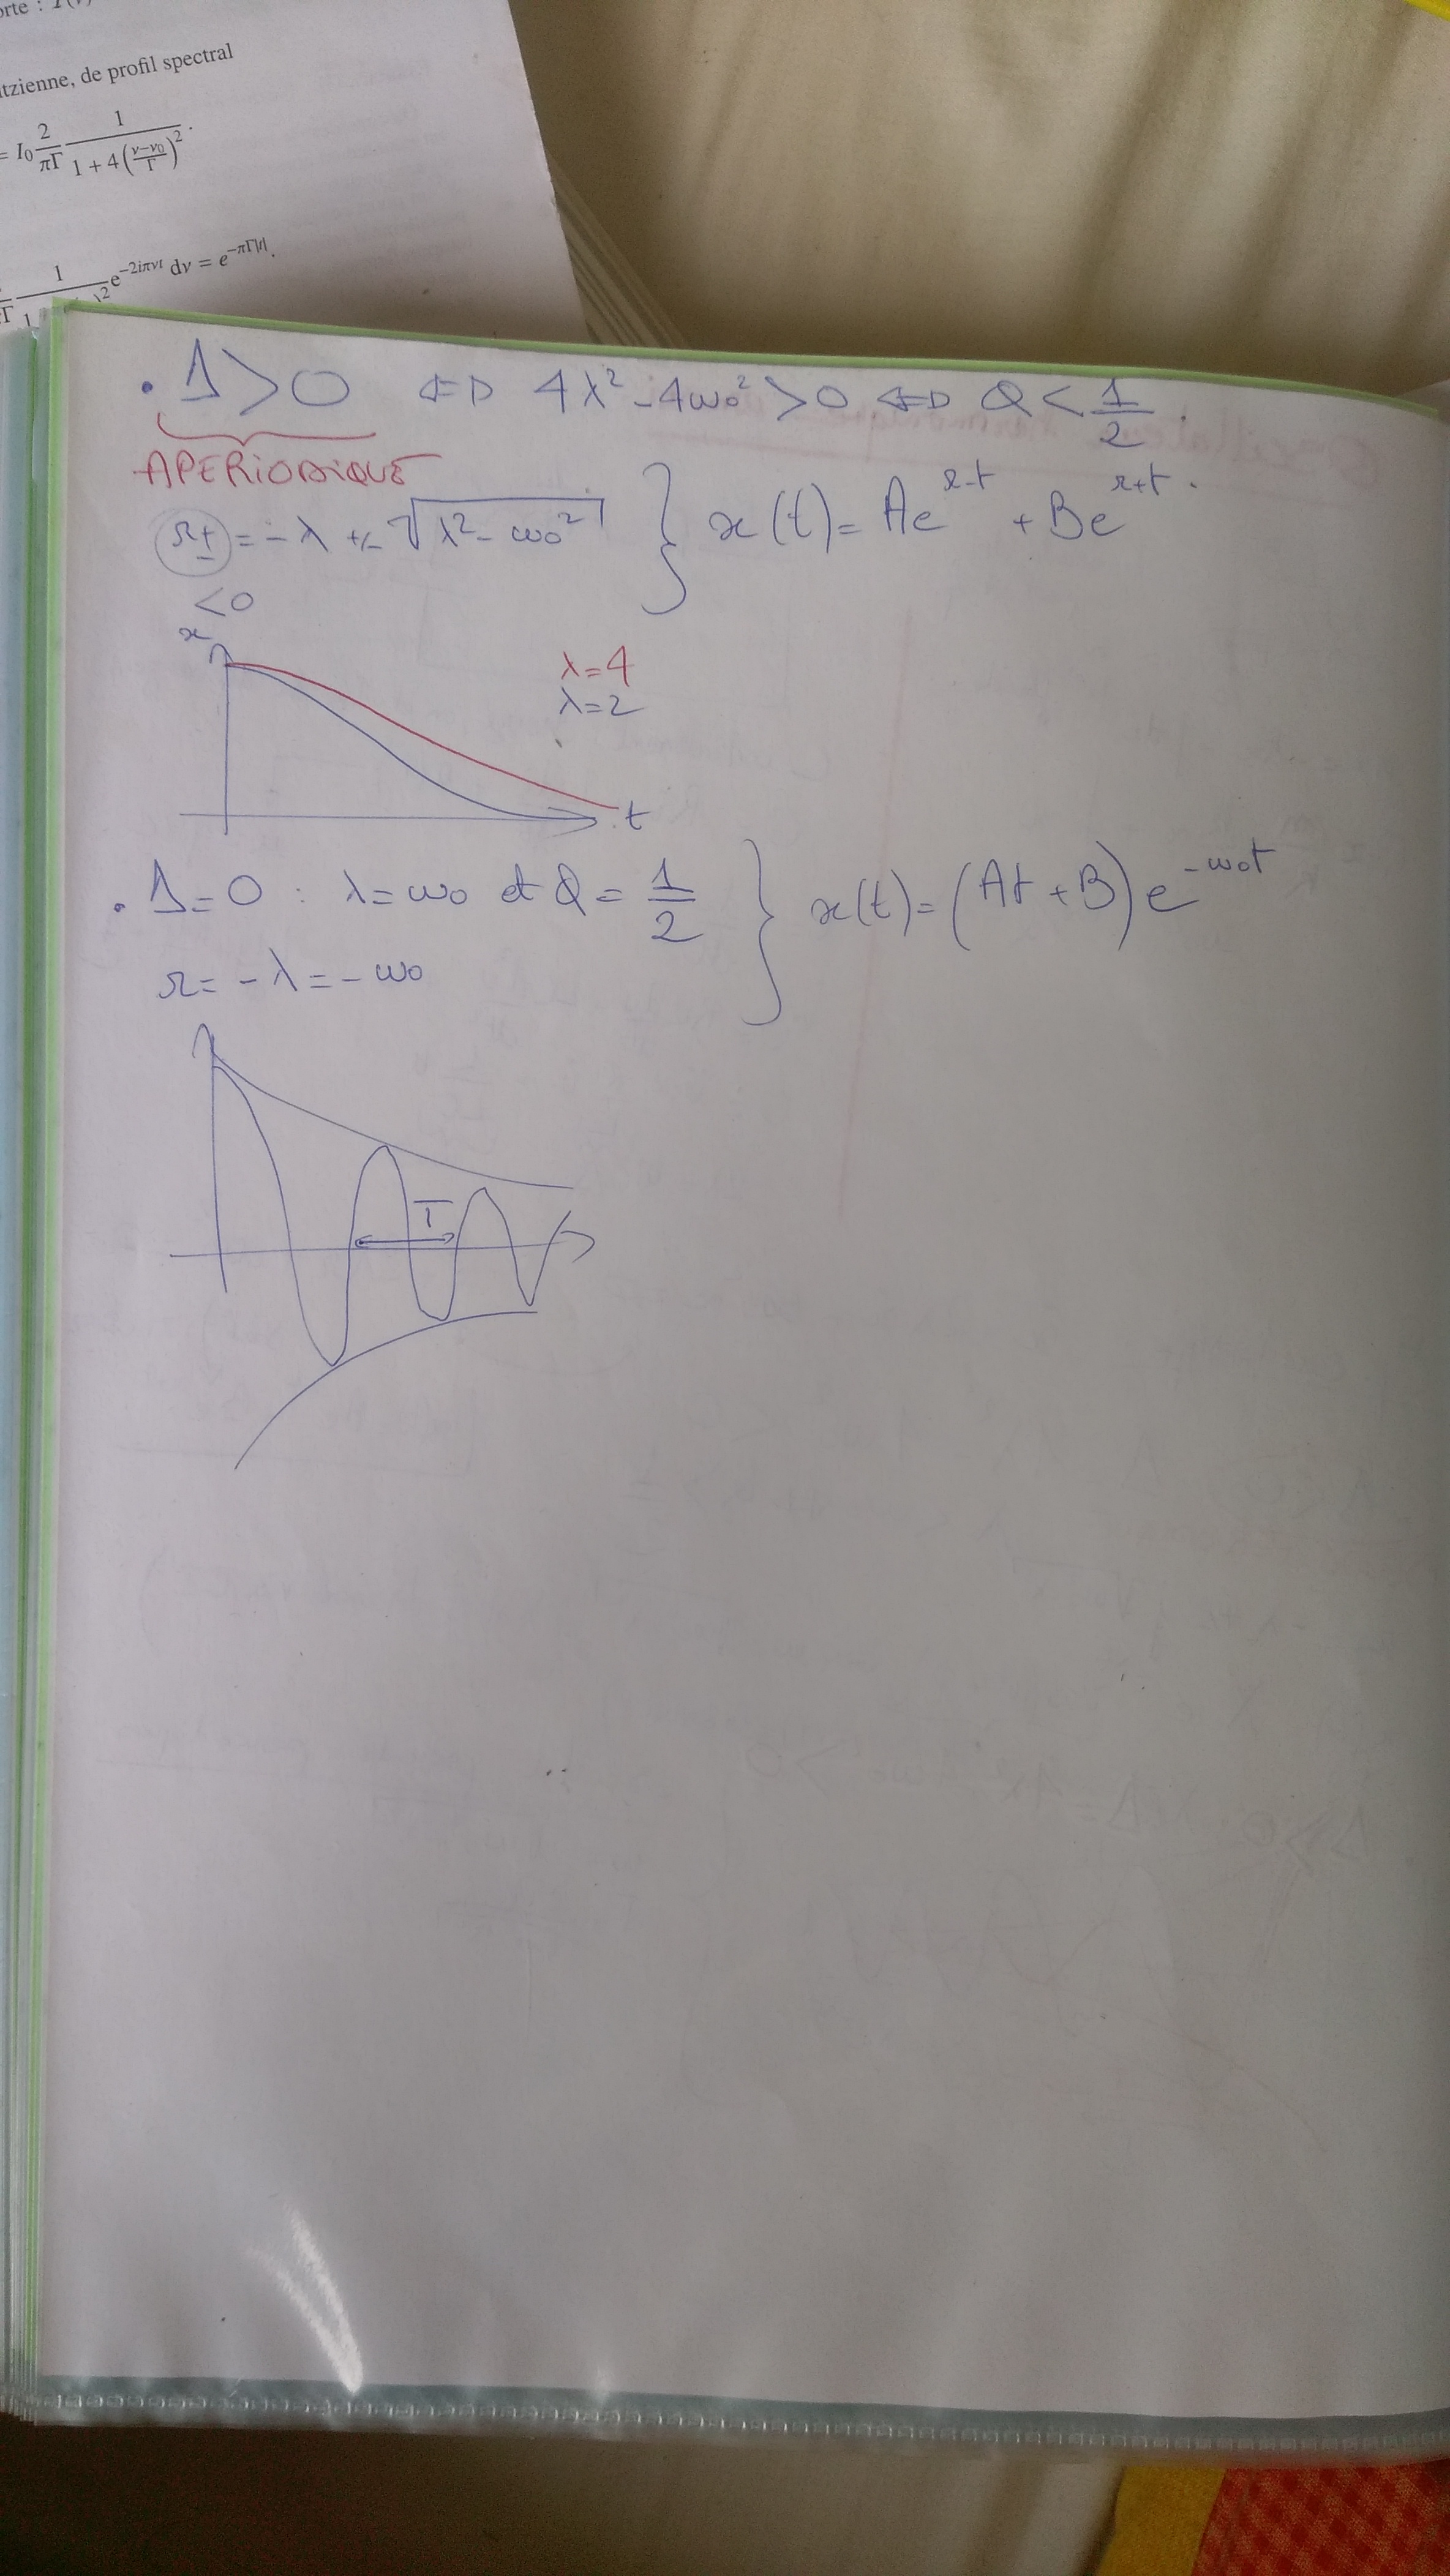 orte :
tzienne, de profil spectral
= I₀ 2/πΓ 1/(1 + 4((ν−ν₀)/Γ)²).
1 e^{−2iπνt} dν = e^{−πΓ|t|}.
. Δ>0 ⇔ 4λ² - 4ω₀² > 0 ⇔ Q < 1/2.
APERIODIQUE
r± = -λ +/- √(λ² - ω₀²) } x(t) = Ae^{r-t} + Be^{r+t}.
<0
x
λ=4
λ=2
t
. Δ=0 : λ=ω₀ et Q = 1/2 } x(t) = (At + B) e^{-ω₀t}
r = -λ = -ω₀
T